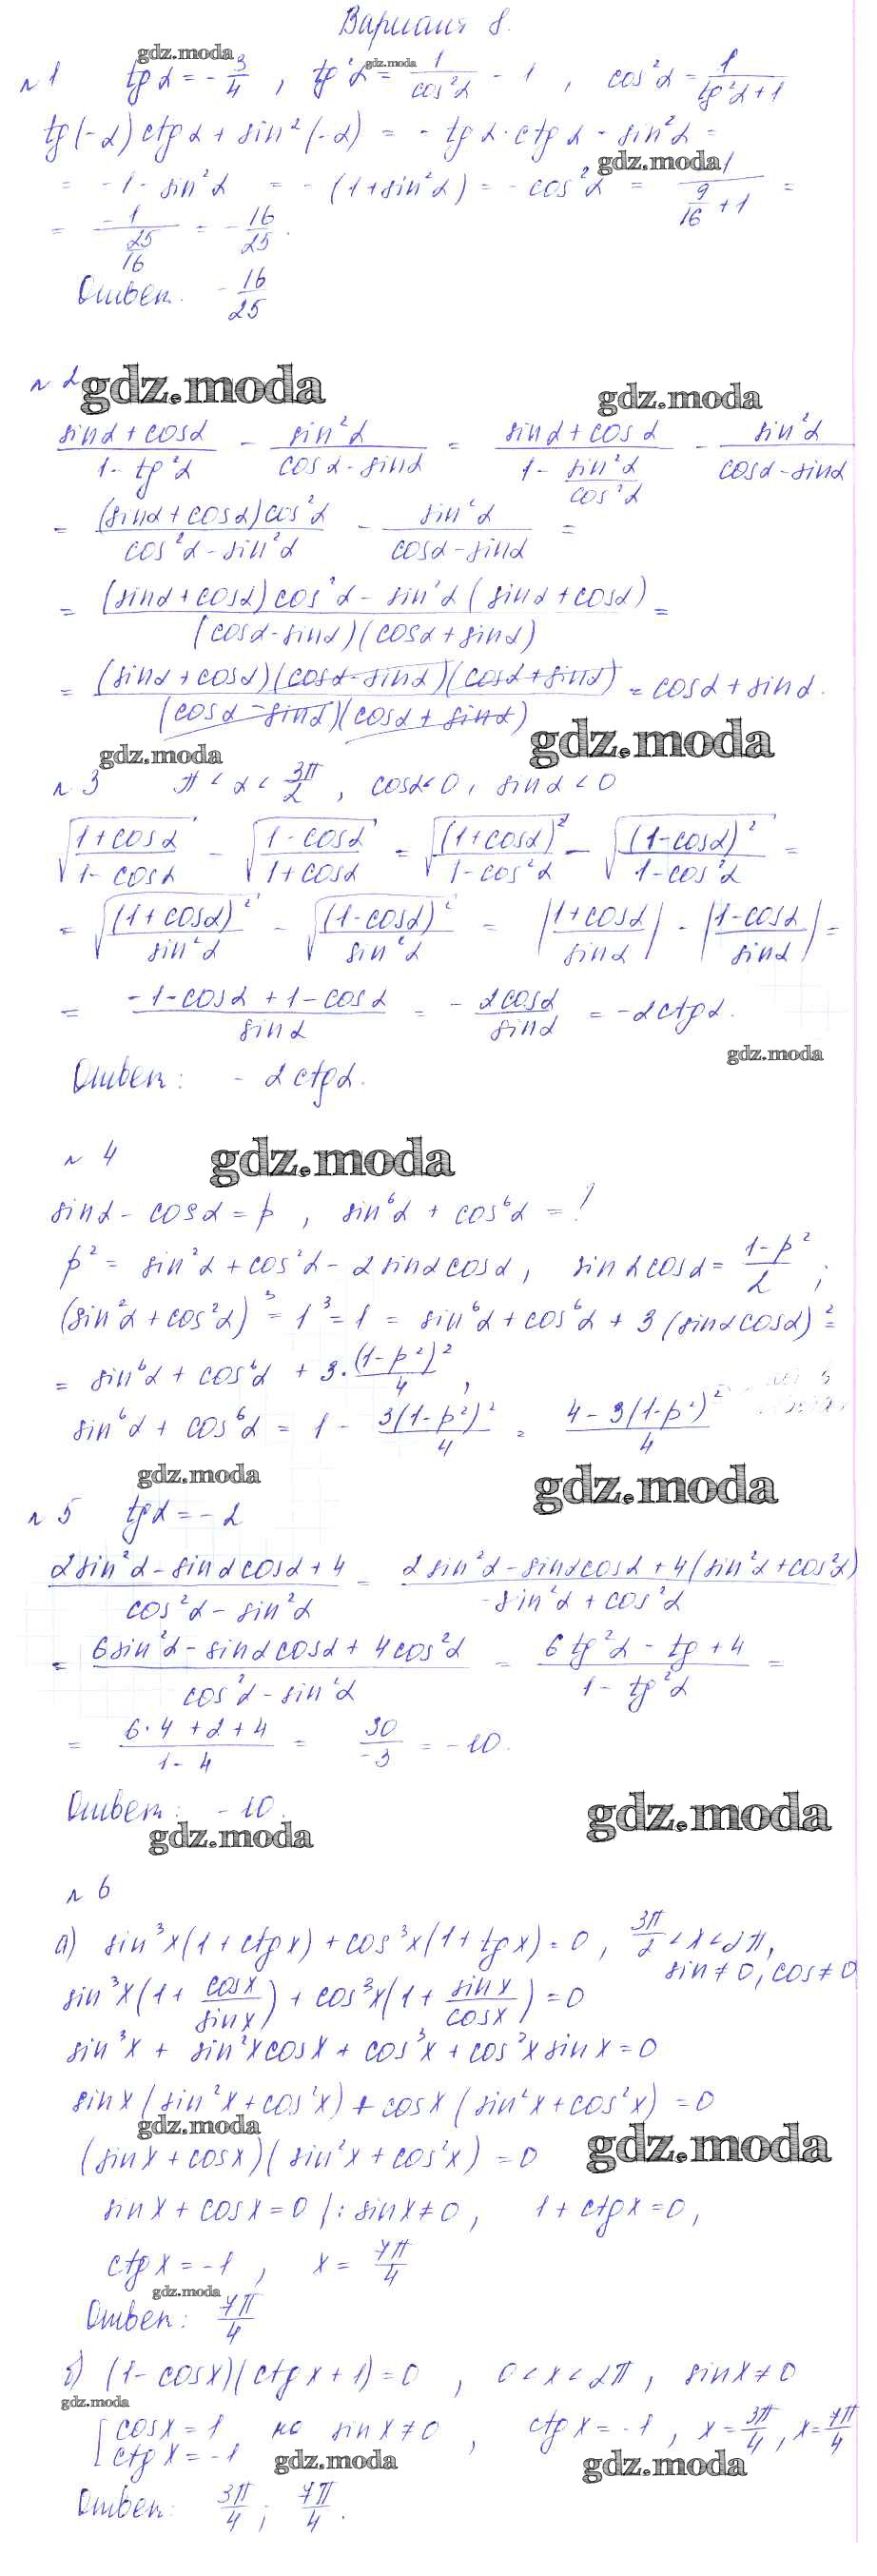 Вариант 8.
gdz.moda
gdz.moda
№1 tg α = -3/4 , tg²α = 1/cos²α - 1 , cos²α = 1/(tg²α + 1)
tg(-α)ctg α + sin²(-α) = - tg α · ctg α - sin²α =
gdz.moda
= -1 - sin²α = -(1 + sin²α) = -cos²α = -1/(9/16 + 1) =
= -1/(25/16) = -16/25.
Ответ. -16/25
№2 gdz.moda gdz.moda
(sinα + cosα)/(1 - tg²α) - sin²α/(cosα - sinα) = (sinα + cosα)/(1 - sin²α/cos²α) - sin²α/(cosα - sinα)
= (sinα + cosα)cos²α/(cos²α - sin²α) - sin²α/(cosα - sinα) =
= ((sinα + cosα)cos²α - sin²α(sinα + cosα))/((cosα - sinα)(cosα + sinα)) =
= (sinα + cosα)(cosα - sinα)(cosα + sinα)/((cosα - sinα)(cosα + sinα)) = cosα + sinα.
gdz.moda gdz.moda
№3 π < α < 3π/2 , cosα < 0, sinα < 0
√((1 + cosα)/(1 - cosα)) - √((1 - cosα)/(1 + cosα)) = √((1 + cosα)²/(1 - cos²α)) - √((1 - cosα)²/(1 - cos²α)) =
= √((1 + cosα)²/sin²α) - √((1 - cosα)²/sin²α) = |(1 + cosα)/sinα| - |(1 - cosα)/sinα| =
= (-1 - cosα + 1 - cosα)/sinα = -2cosα/sinα = -2ctgα.
gdz.moda
Ответ: -2ctgα.
№4 gdz.moda
sinα - cosα = p , sin⁶α + cos⁶α = ?
p² = sin²α + cos²α - 2sinαcosα, sinαcosα = (1 - p²)/2 ;
(sin²α + cos²α)³ = 1³ = 1 = sin⁶α + cos⁶α + 3(sinαcosα)² =
= sin⁶α + cos⁶α + 3·(1 - p²)²/4 ,
sin⁶α + cos⁶α = 1 - 3(1 - p²)²/4 = (4 - 3(1 - p²)²)/4
gdz.moda gdz.moda
№5 tgα = -2
(2sin²α - sinαcosα + 4)/(cos²α - sin²α) = (2sin²α - sinαcosα + 4(sin²α + cos²α))/(-sin²α + cos²α)
= (6sin²α - sinαcosα + 4cos²α)/(cos²α - sin²α) = (6tg²α - tg + 4)/(1 - tg²α) =
= (6·4 + 2 + 4)/(1 - 4) = 30/-3 = -10.
Ответ: -10. gdz.moda
gdz.moda
№6
а) sin³x(1 + ctgx) + cos³x(1 + tgx) = 0, 3π/2 < x < 2π,
sin ≠ 0, cos ≠ 0
sin³x(1 + cosx/sinx) + cos³x(1 + sinx/cosx) = 0
sin³x + sin²xcosx + cos³x + cos²xsinx = 0
sinx(sin²x + cos²x) + cosx(sin²x + cos²x) = 0
gdz.moda gdz.moda
(sinx + cosx)(sin²x + cos²x) = 0
sinx + cosx = 0 |: sinx ≠ 0, 1 + ctgx = 0,
ctgx = -1 , x = 7π/4
gdz.moda
Ответ: 7π/4
б) (1 - cosx)(ctgx + 1) = 0 , 0 < x < 2π , sinx ≠ 0
gdz.moda
[ cosx = 1 но sinx ≠ 0 , ctgx = -1 , x = 3π/4 , x = 7π/4
ctgx = -1 gdz.moda gdz.moda
Ответ: 3π/4 ; 7π/4 .